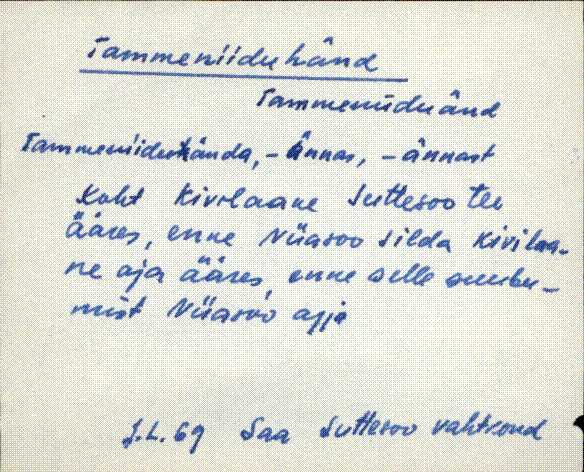 Tammeniiduhänd
Tammeniiduänd
Tammeniiduhända, -ännas, -ännast
Koht Kivilaane Suttesoo tee
ääres, enne Niiasoo silda Kivilaa-
ne oja ääres, enne selle suubu-
mist Niiasoo ojja
J.L. 69 Saa Suttesoo vahtkond